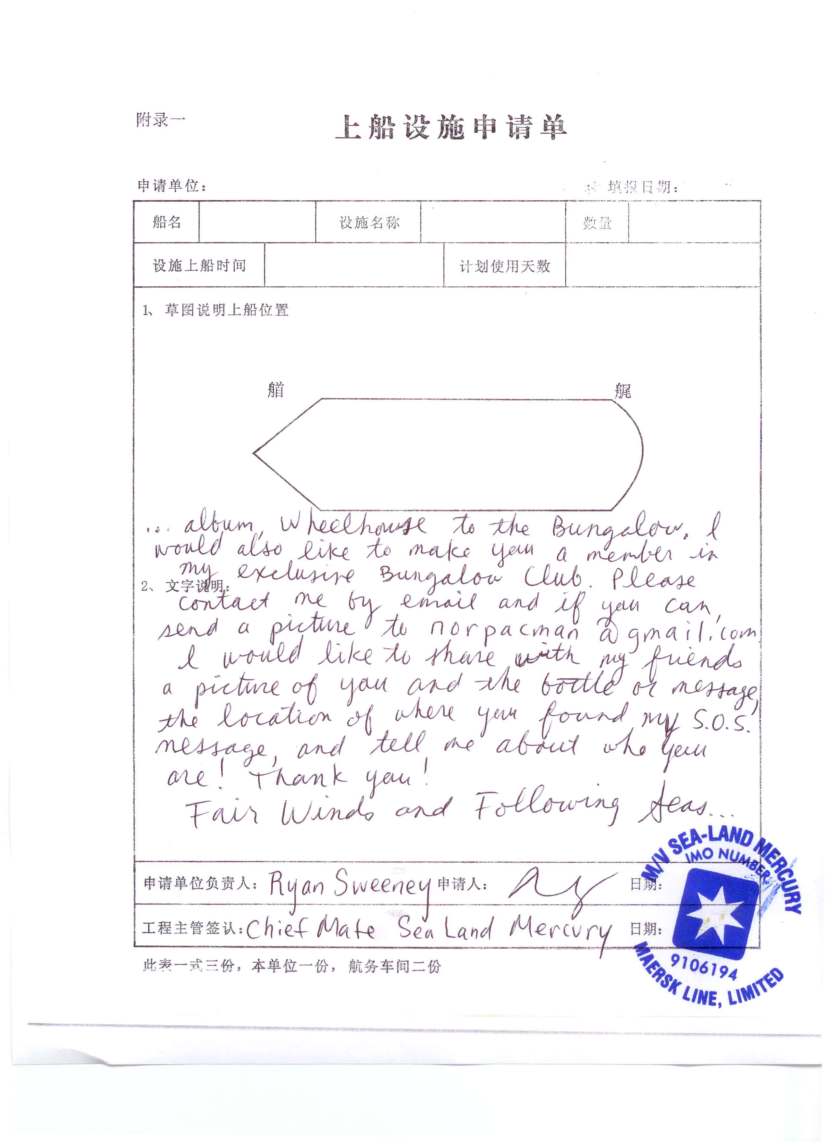 附录一
上船设施申请单
申请单位：
填报日期：
船名
设施名称
数量
设施上船时间
计划使用天数
1、草图说明上船位置
艏
艉
... album, Wheelhouse to the Bungalow. I
would also like to make you a member in
my exclusive Bungalow Club. Please
2、文字说明：
contact me by email and if you can,
send a picture to norpacman@gmail.com
I would like to share with my friends
a picture of you and the bottle or message,
the location of where you found my S.O.S.
message, and tell me about who you
are! Thank you!
Fair Winds and Following Seas...
申请单位负责人：Ryan Sweeney 申请人： 日期：
工程主管签认：Chief Mate Sea Land Mercury 日期：
此表一式三份，本单位一份，航务车间二份
M/V SEA-LAND MERCURY
IMO NUMBER
9106194
MAERSK LINE, LIMITED